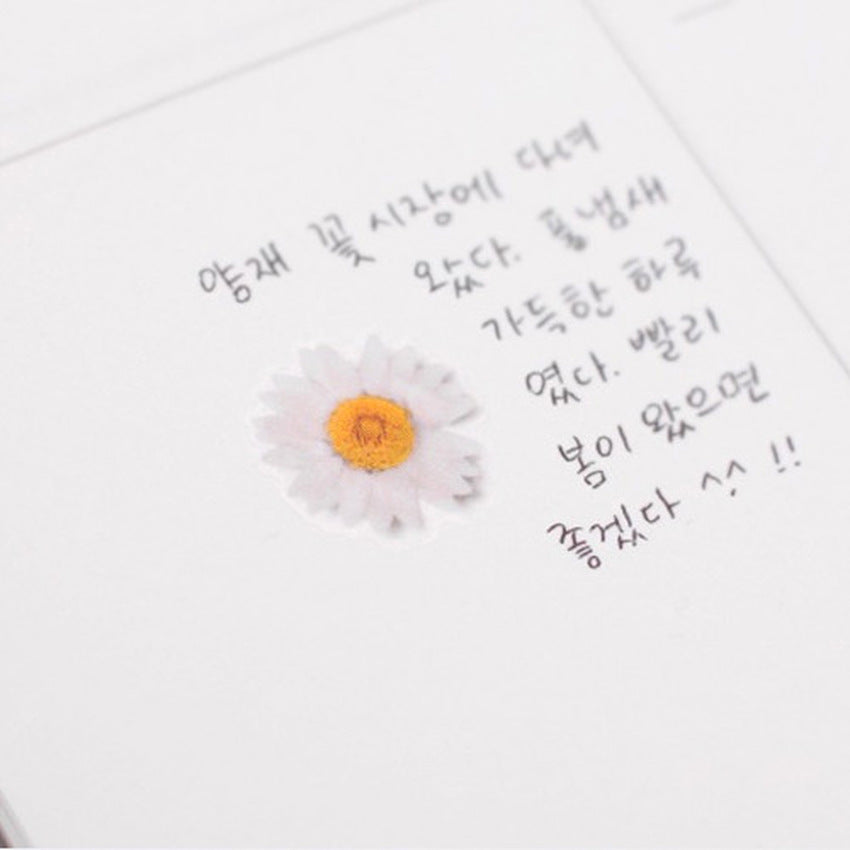 양재 꽃 시장에 다녀
왔다. 풀냄새
가득한 하루
였다. 빨리
봄이 왔으면
좋겠다 ^^ !!